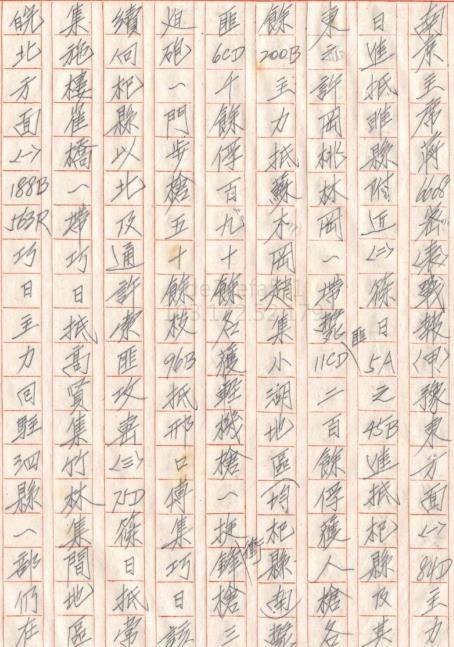 南京主席蔣6608密戰報(甲)豫東方面<一>84D主力
日進抵睢縣附近<二>篠日5A之45B進抵杞縣及其
東之許岡桃林岡一帶擊匪11CD二百餘俘獲人槍各
餘200B主力抵蘇木岡趙集小湖地區均杞縣(南)擊
匪6CD千餘俘百九十餘名獲輕機槍一挺衝鋒槍三
迫砲一門步槍五十餘枝96B抵邢口傅集巧日該
續向杞縣以北及通許東匪攻<三>75D篠日抵常
集施樓崔橋一帶巧日抵高賢集竹林集間地區
皖北方面<一>188B563R巧日主力回駐泗縣一部仍在